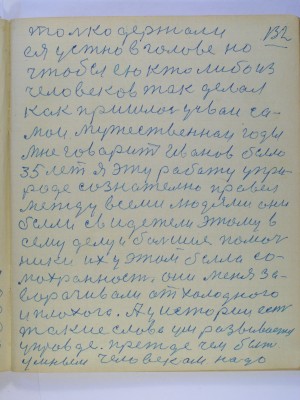 132
толкодержали
ся устно в голове но
чтобы ею кто либо из
человеков так делал
как пришлос учваи са-
мои мужественнаи годы
мне говарит Иванов было
35 лет я эту работу у при-
роде сознателно провел
между всеми людями они
были свидетели этому в
сему делу и бывшие помоч-
ники их у этом была со-
мохранность, они меня за-
ворачивали от холодного
и плохого. А у истории ест
такие слова
управде. прежде чем быт
умным человекам надо